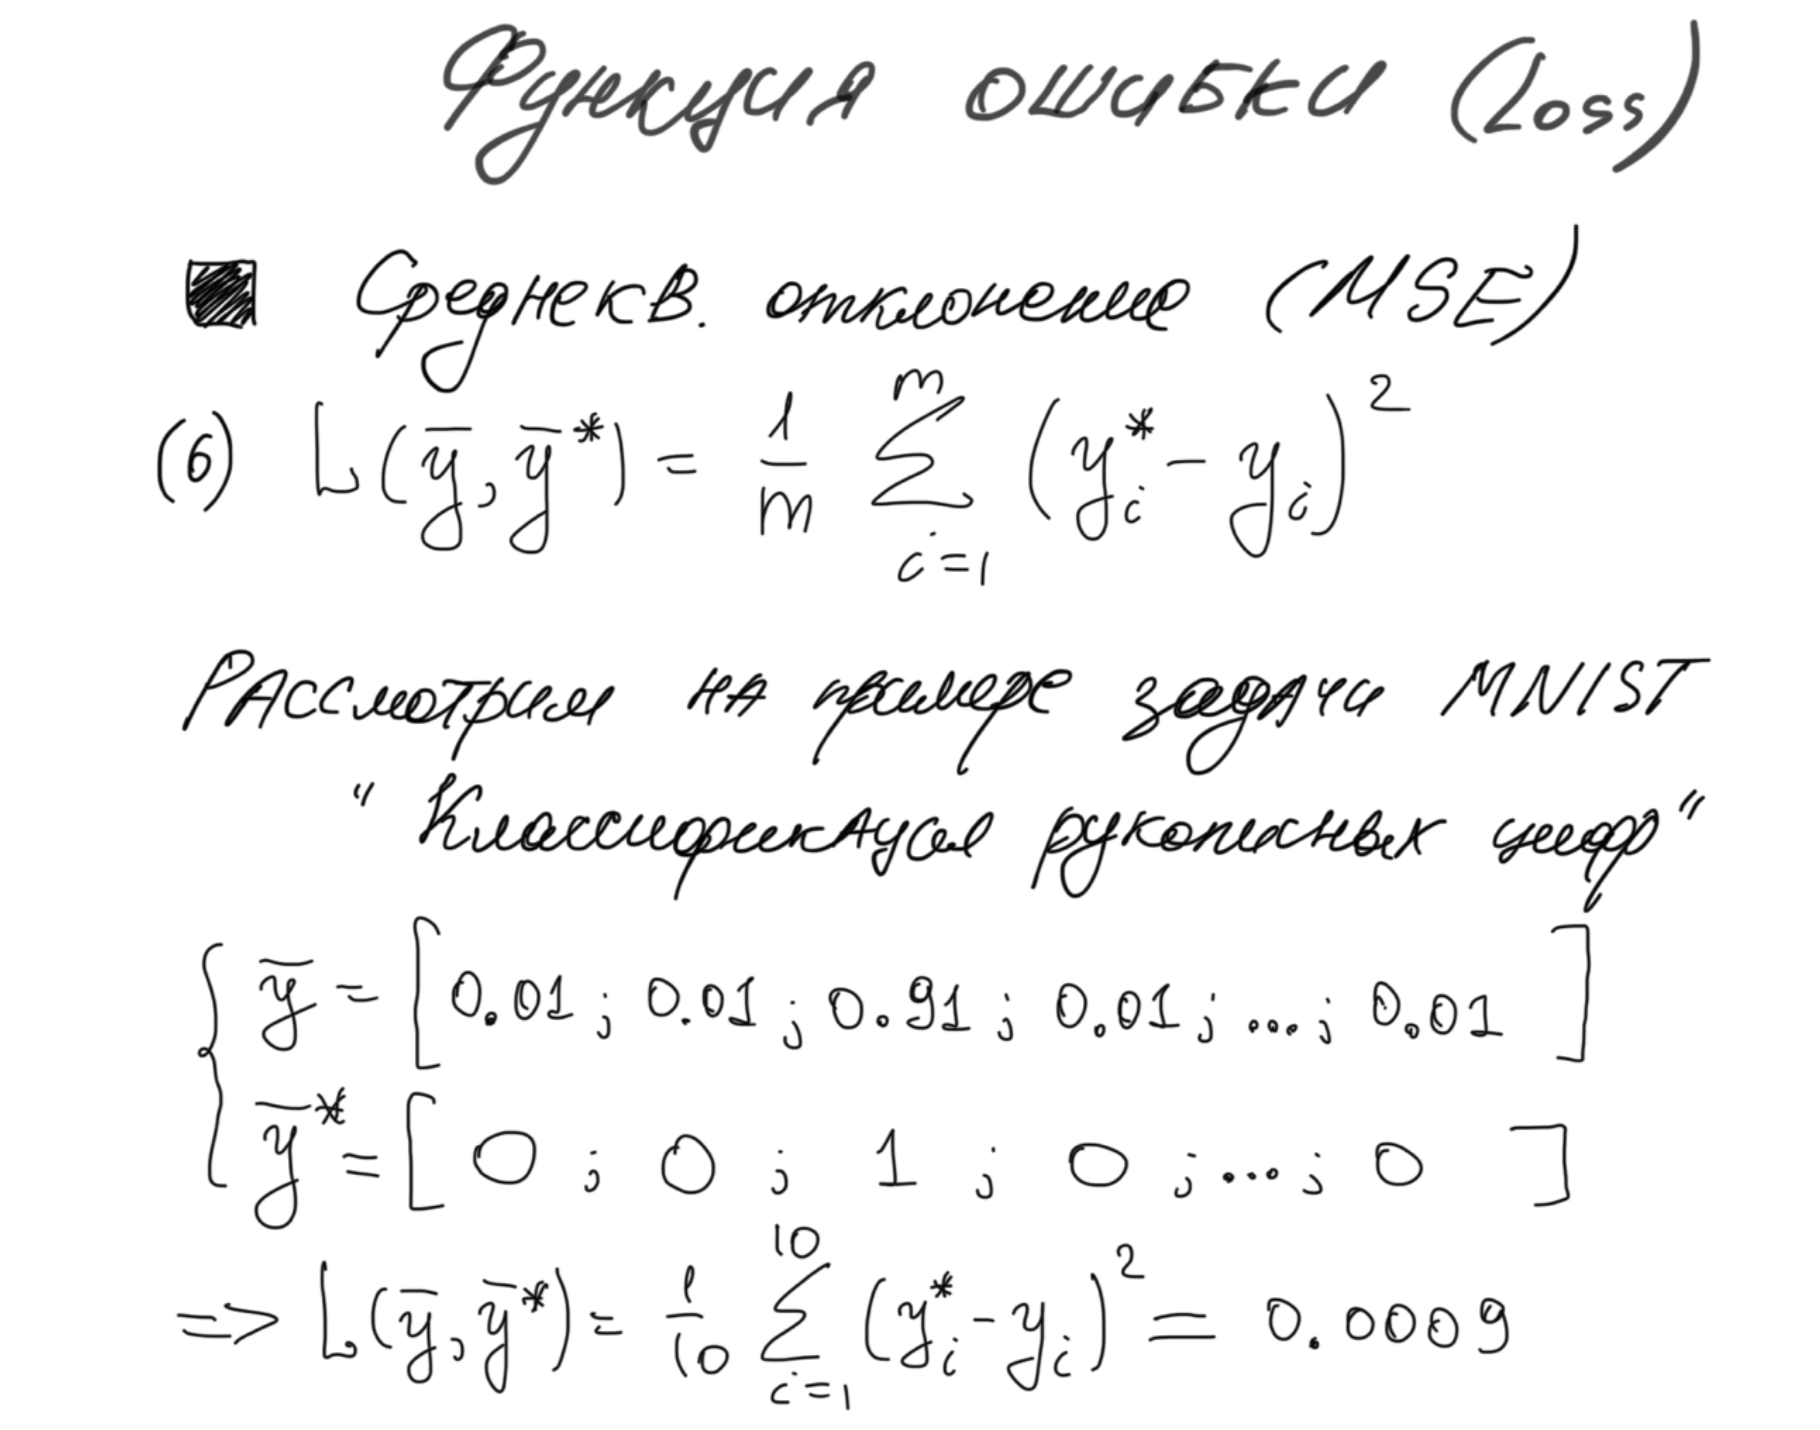 Функция ошибки (Loss)
Среднекв. отклонение (MSE)
(6) L(y̅, y̅*) = 1/m ∑_{i=1}^{m} (y*_i - y_i)²
Рассмотрим на примере задачи MNIST
"Классификация рукописных цифр"
y̅ = [0.01; 0.01; 0.91; 0.01; ...; 0.01]
y̅* = [0; 0; 1; 0; ...; 0]
=> L(y̅, y̅*) = 1/10 ∑_{i=1}^{10} (y*_i - y_i)² = 0.0009